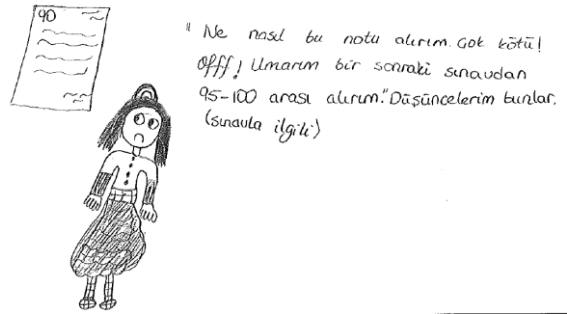 90
" Ne nasıl bu notu alırım. Çok kötü!
Offf! Umarım bir sonraki sınavdan
95-100 arası alırım." Düşüncelerim bunlar.
(sınavla ilgili)